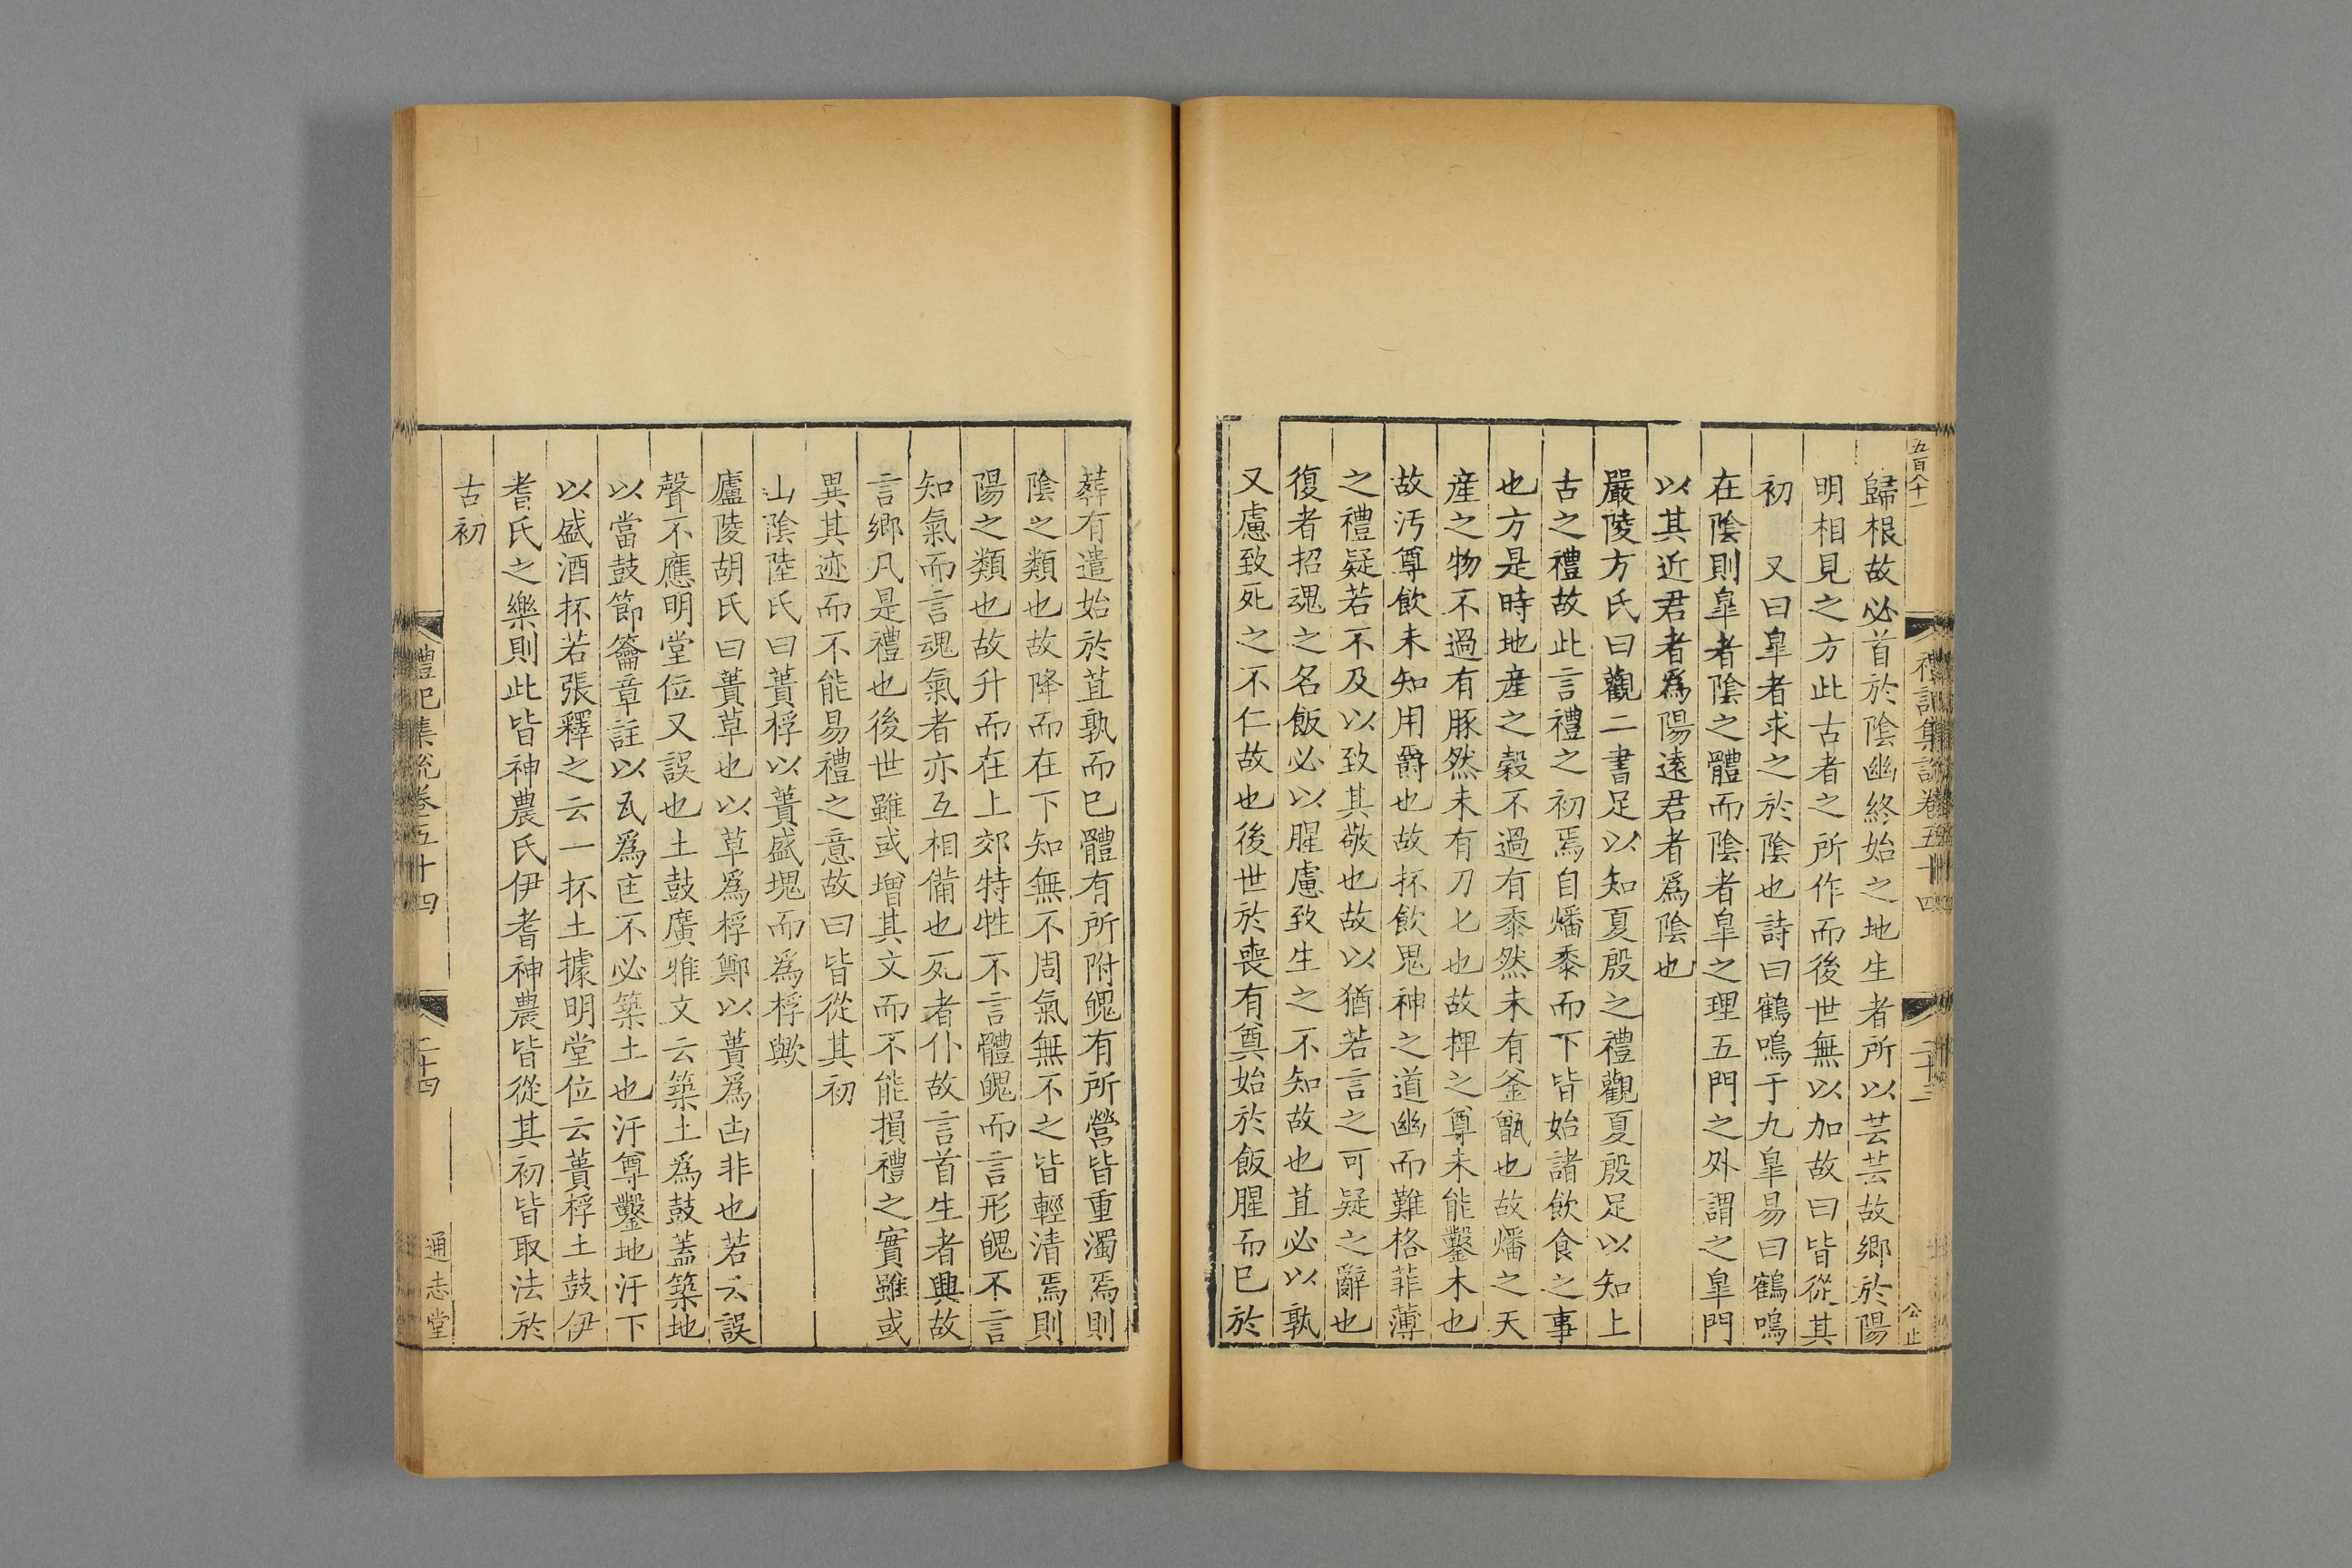 五百八十一
禮記集說卷五十四
公止
歸根故必首於陰幽終始之地生者所以芸芸故鄉於陽
明相見之方此古者之所作而後世無以加故曰皆從其
初　又曰臯者求之於陰也詩曰鶴鳴于九臯易曰鶴鳴
在陰則臯者陰之體而陰者臯之理五門之外謂之臯門
以其近君者爲陽遠君者爲陰也
嚴陵方氏曰觀二書足以知夏殷之禮觀夏殷足以知上
古之禮故此言禮之初焉自燔黍而下皆始諸飲食之事
也方是時地産之穀不過有黍然未有釜甑也故燔之天
産之物不過有豚然未有刀匕也故捭之尊未能鑿木也
故汚尊飲未知用爵也故抔飲鬼神之道幽而難格菲薄
之禮疑若不及以致其敬也故以猶若言之可疑之辭也
復者招魂之名飯必以腥慮致生之不知故也苴必以孰
又慮致死之不仁故也後世於喪有奠始於飯腥而已於
葬有遣始於苴孰而已體有所附魄有所營皆重濁焉則
陰之類也故降而在下知無不周氣無不之皆輕清焉則
陽之類也故升而在上郊特牲不言體魄而言形魄不言
知氣而言魂氣者亦互相備也死者仆故言首生者興故
言鄉凡是禮也後世雖或增其文而不能損禮之實雖或
異其迹而不能易禮之意故曰皆從其初
山陰陸氏曰蕢桴以蕢盛塊而爲桴歟
廬陵胡氏曰蕢草也以草爲桴鄭以蕢爲凷非也若云誤
聲不應明堂位又誤也土鼓廣雅文云築土爲鼓蓋築地
以當鼓節籥章註以瓦爲匡不必築土也汙尊鑿地汙下
以盛酒抔若張釋之云一抔土據明堂位云蕢桴土鼓伊
耆氏之樂則此皆神農氏伊耆神農皆從其初皆取法於
古初
禮記集說卷五十四
二十四
通志堂